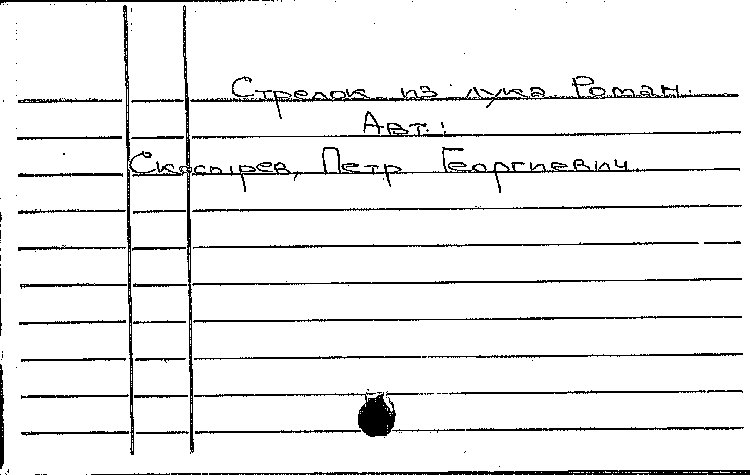 Стрелок из лука. Роман.
Авт.:
Скосырев, Петр Георгиевич